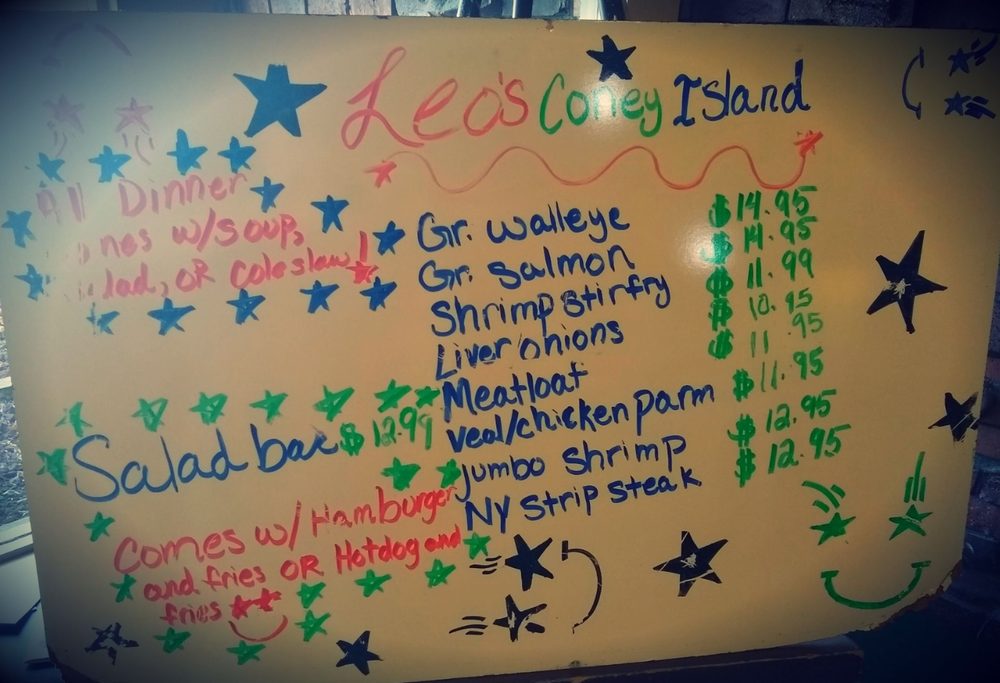 Leo's Coney Island
All Dinner
w/soup,
OR Coleslaw!
Gr. walleye $14.95
Gr. Salmon $14.95
Shrimp stirfry $11.99
Liver onions $10.95
Meatloaf $11.95
Veal/chicken parm $11.95
Jumbo shrimp $12.95
NY strip steak $12.95
Salad bar $12.99
Comes w/Hamburger
and fries OR Hotdog and
fries